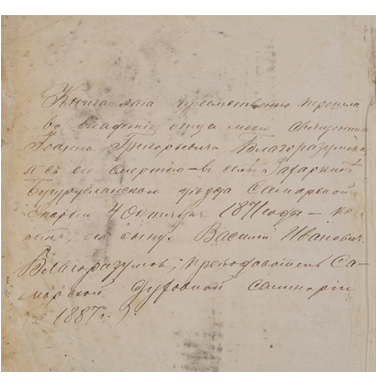 Книга эта преемственно перешла
во владение отца моего священника
Иоанна Григорьевича Благоразумова,
а с его смертию – в селе
Бугурусланского уезда Самарской
Епархии 4 Октября 1871 года –
его сыну. Василий Иванович
Благоразумов, преподаватель Са-
марской Духовной Семинарии
1887 г.